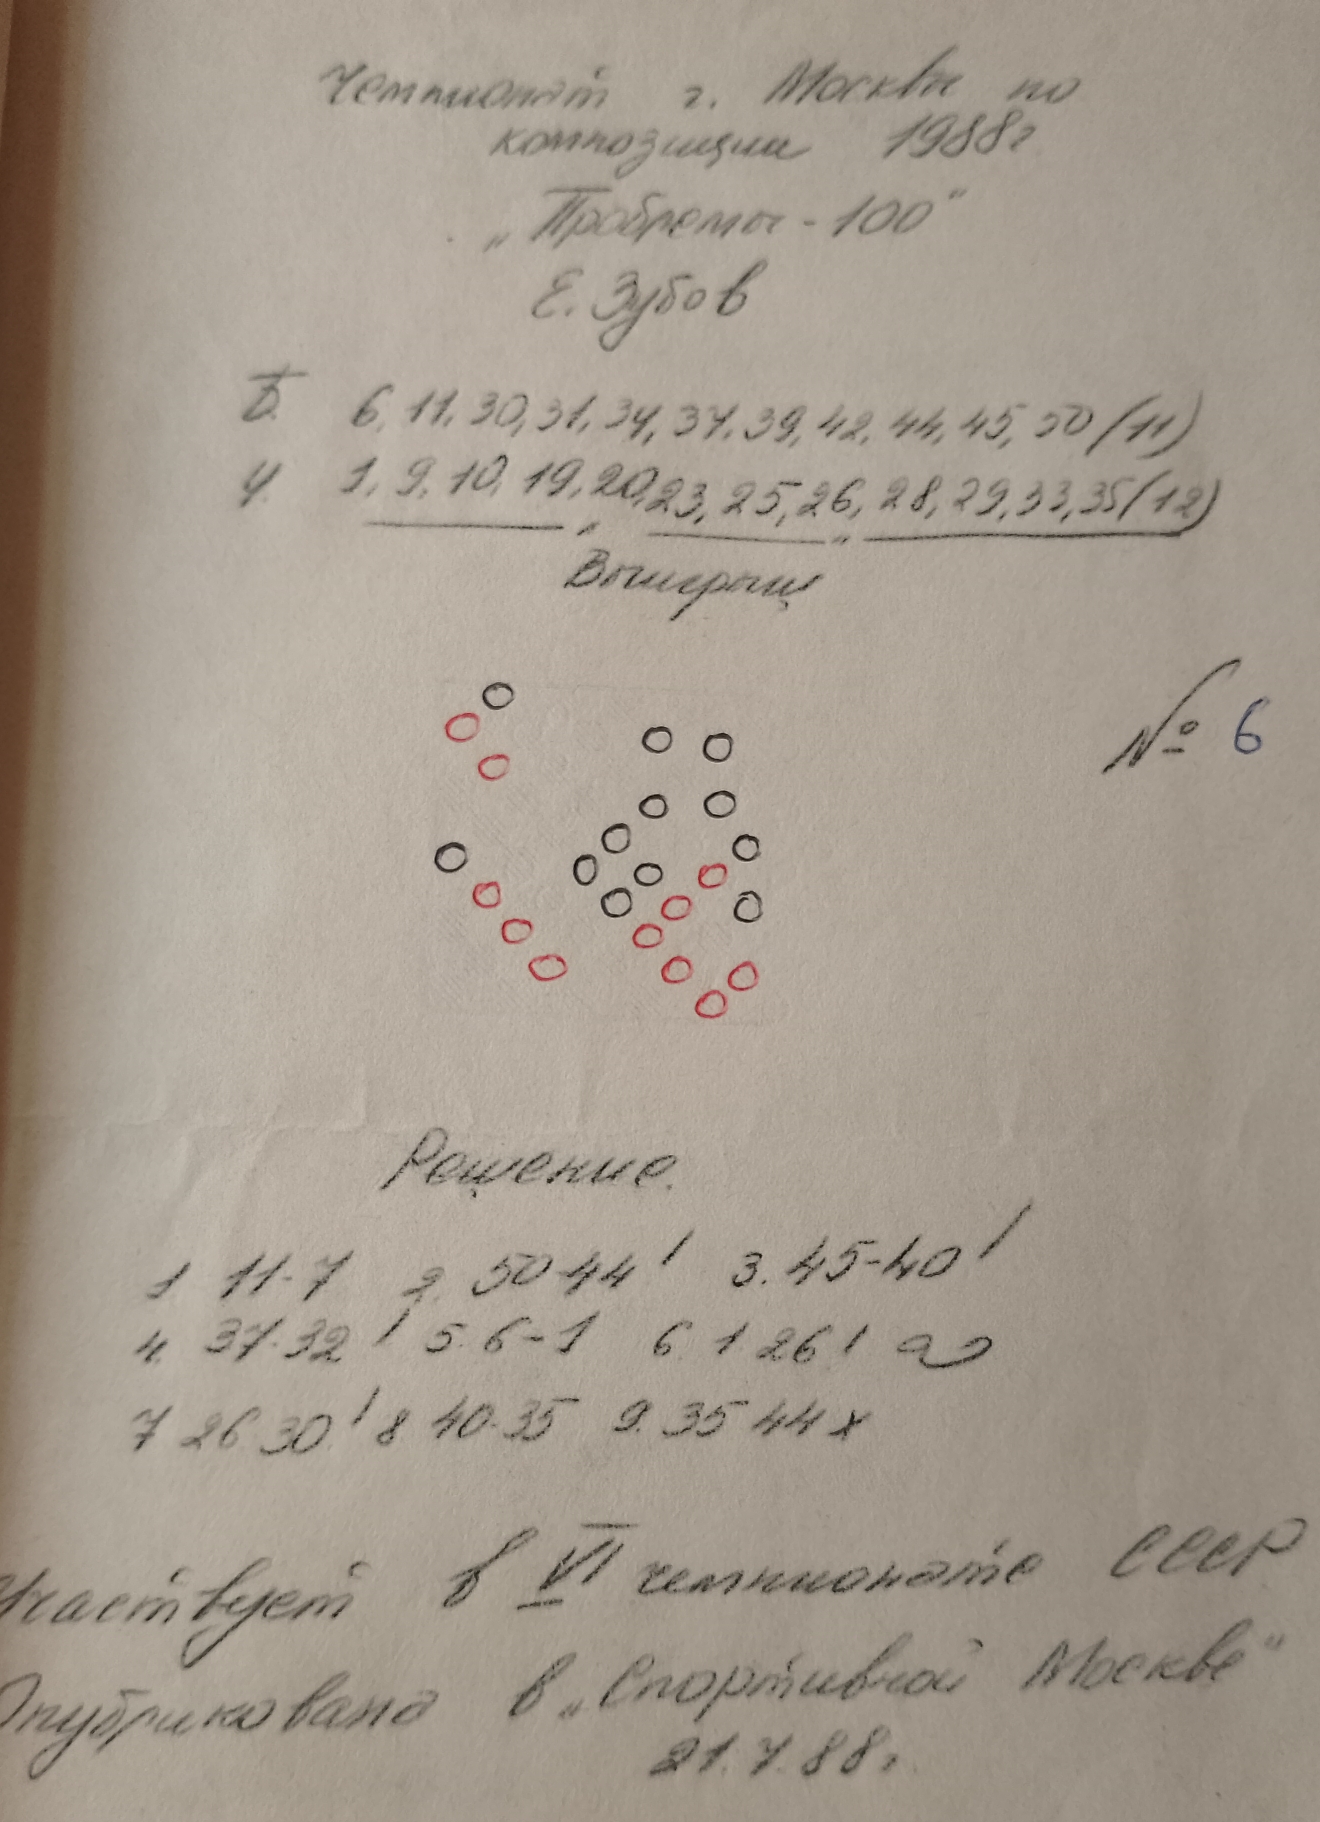 Чемпионат г. Москвы по
композиции 1988г
„Проблемы-100"
Е. Зубов
Б. 6, 11, 30, 31, 34, 37, 39, 42, 44, 45, 50 (11)
Ч. 1, 9, 10, 19, 20, 23, 25, 26, 28, 29, 33, 35 (12)
„Выигрыш"
№ 6
Решение.
1 11-7 2. 50-44! 3. 45-40!
4. 37-32! 5. 6-1 6. 1 26! a
7 26 30! 8 40-35 9. 35 44 x
Участвует в VI чемпионате СССР
Опубликована в „Спортивной Москве"
21.7.88г.